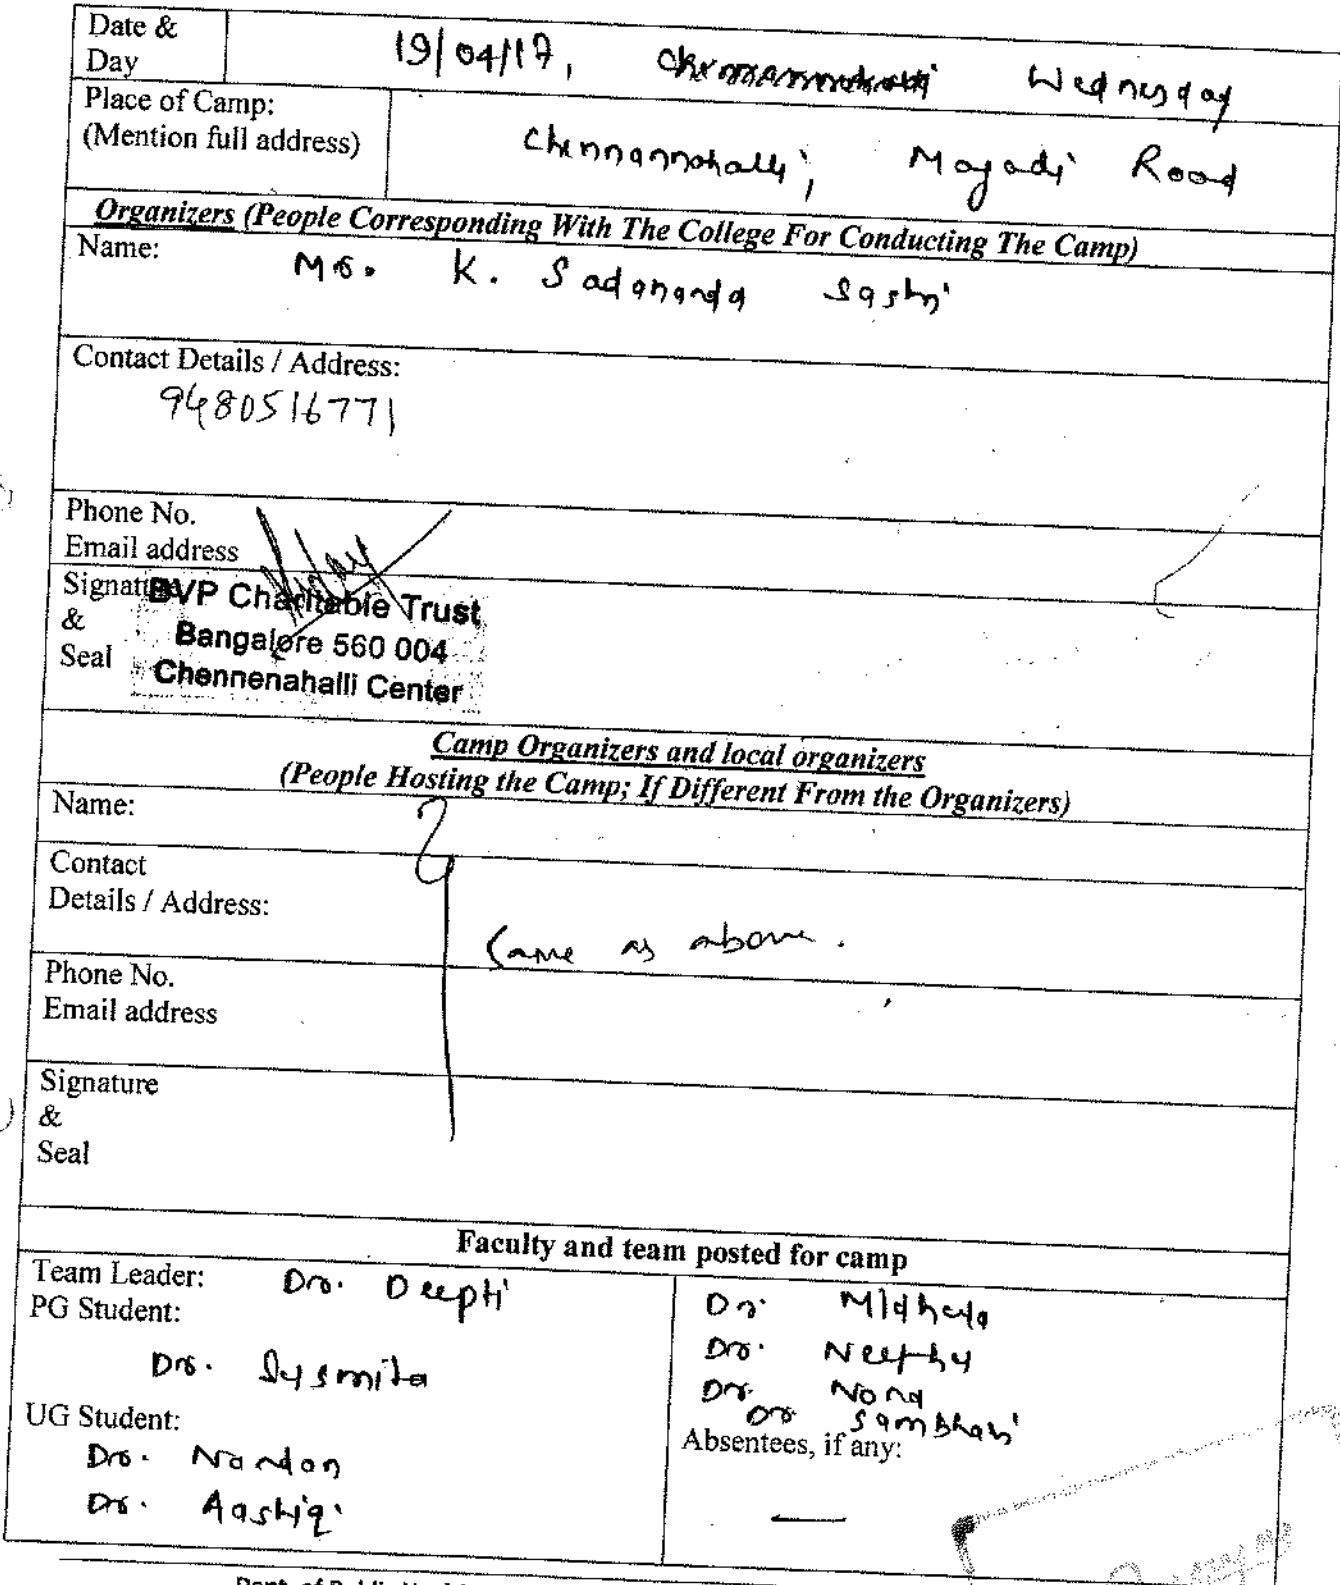 Date & Day 19/04/17, Wednesday
Place of Camp: (Mention full address) Chennannahalli, Magadi Road
Organizers (People Corresponding With The College For Conducting The Camp)
Name: Mr. K. Sadananda Sastri
Contact Details / Address:
9480516771
Phone No.
Email address
Signature
&
Seal
BVP Charitable Trust
Bangalore 560 004
Chennenahalli Center
Camp Organizers and local organizers
(People Hosting the Camp; If Different From the Organizers)
Name:
Contact
Details / Address:
Same as above.
Phone No.
Email address
Signature
&
Seal
Faculty and team posted for camp
Team Leader: Dr. Deepti
PG Student:
Dr. Susmita
UG Student:
Dr. Nandan
Dr. Aashiq
Dr. Midhula
Dr. Neethu
Dr. Nona
Dr Sambhavi
Absentees, if any:
—